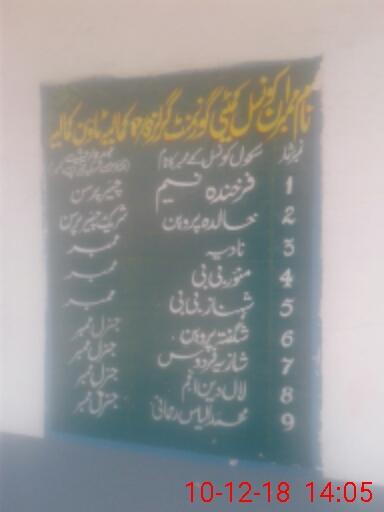 نام ممبران کونسل کمیٹی گورنمنٹ گرلز کمالیہ ٹاؤن کمالیہ
نمبر شمار سکول کونسل کے ممبر کا نام
1 فرخندہ نسیم چیئر پرسن
2 خالدہ پروین شریک چیئر پرسن
3 نادیہ ممبر
4 منور بی بی ممبر
5 شہناز بی بی ممبر
6 شگفتہ پروین جنرل ممبر
7 شازیہ فردوس جنرل ممبر
8 لال دین انجم جنرل ممبر
9 محمد الیاس رحمانی جنرل ممبر
10-12-18 14:05